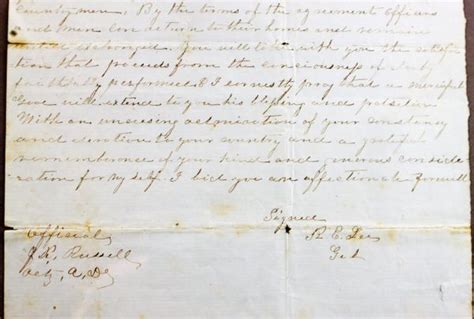 Countrymen. By the terms of the agreement Officers
and men can return to their homes and remain
until exchanged. You will take with you the satisfac
tion that proceeds from the conciousness of duty
faithfully performed & I earnestly pray that a merciful
God will extend to you his blessing and protection
With an unceasing admiration of your constancy
and devotion to your country and a grateful
rememberance of your kind and generous conside
ration for my self. I bid you an affectionate farewell
Signed
Official R. E. Lee
J. R. Russell Genl
Actg. A. D. C.